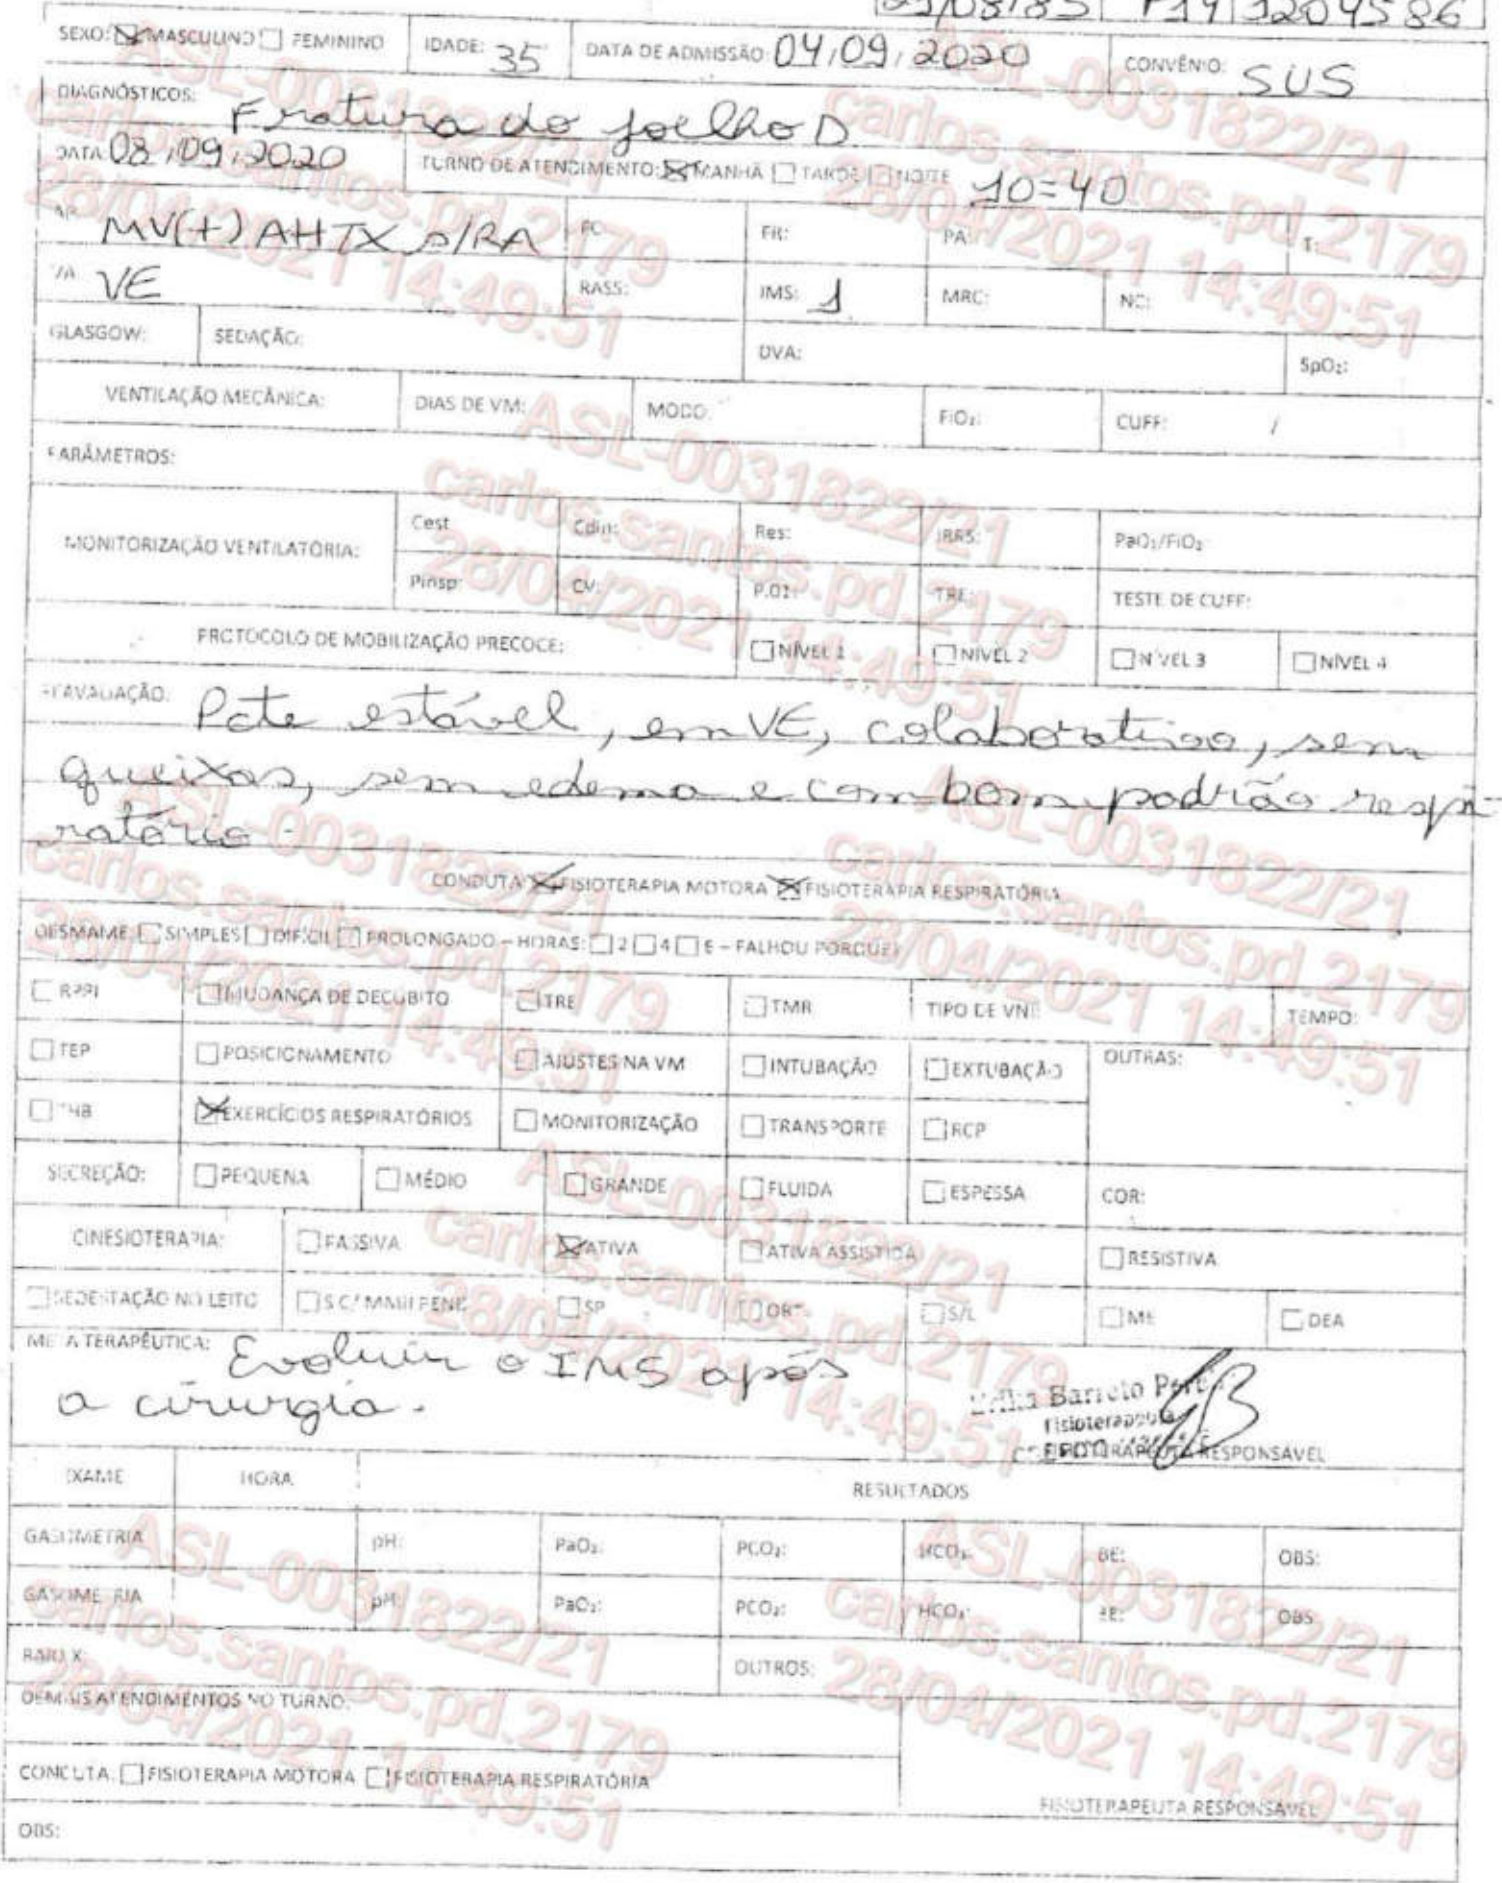 SEXO: MASCULINO FEMININO IDADE: 35 DATA DE ADMISSÃO: 04/09/2020 CONVÊNIO: SUS
DIAGNÓSTICOS: Fratura do joelho D
DATA: 08/09/2020 TURNO DE ATENDIMENTO: MANHÃ TARDE NOITE 10=40
AP: MV(+) AHTX S/RA FC: FR: PA: T:
VA: VE RASS: IMS: 1 MRC: NC:
GLASGOW: SEDAÇÃO: DVA: SpO₂:
VENTILAÇÃO MECÂNICA: DIAS DE VM: MODO: FiO₂: CUFF: /
PARÂMETROS:
MONITORIZAÇÃO VENTILATÓRIA: Cest Cdin: Res: IRRS: PaO₂/FiO₂
Pinsp: CV: P.01: TRE: TESTE DE CUFF:
PROTOCOLO DE MOBILIZAÇÃO PRECOCE: NÍVEL 1 NÍVEL 2 NÍVEL 3 NÍVEL 4
REAVALIAÇÃO: Pcte estável, em VE, colaborativo, sem
queixas, sem edema e com bom padrão respi-
ratório.
CONDUTA: FISIOTERAPIA MOTORA FISIOTERAPIA RESPIRATÓRIA
DESMAME: SIMPLES DIFÍCIL PROLONGADO – HORAS: 2 4 6 – FALHOU PORQUE?
RPPI MUDANÇA DE DECÚBITO TRE TMR TIPO DE VNI: TEMPO:
TEP POSICIONAMENTO AJUSTES NA VM INTUBAÇÃO EXTUBAÇÃO OUTRAS:
THB EXERCÍCIOS RESPIRATÓRIOS MONITORIZAÇÃO TRANSPORTE RCP
SECREÇÃO: PEQUENA MÉDIO GRANDE FLUIDA ESPESSA COR:
CINESIOTERAPIA: PASSIVA ATIVA ATIVA ASSISTIDA RESISTIVA
SEDESTAÇÃO NO LEITO S C/ MMII PEND SP ORT. S/L ME DEA
META TERAPÊUTICA: Evoluir o IMS após
a cirurgia.
Barreto
Fisioterapeuta
FISIOTERAPEUTA RESPONSÁVEL
EXAME HORA RESULTADOS
GASOMETRIA pH: PaO₂: PCO₂: HCO₃: BE: OBS:
GASOMETRIA pH: PaO₂: PCO₂: HCO₃: BE: OBS
RAIO X: OUTROS:
DEMAIS ATENDIMENTOS NO TURNO:
CONDUTA: FISIOTERAPIA MOTORA FISIOTERAPIA RESPIRATÓRIA
FISIOTERAPEUTA RESPONSÁVEL
OBS:
ASL-0031822/21
carlos.santos.pd.2179
28/04/2021 14:49:51